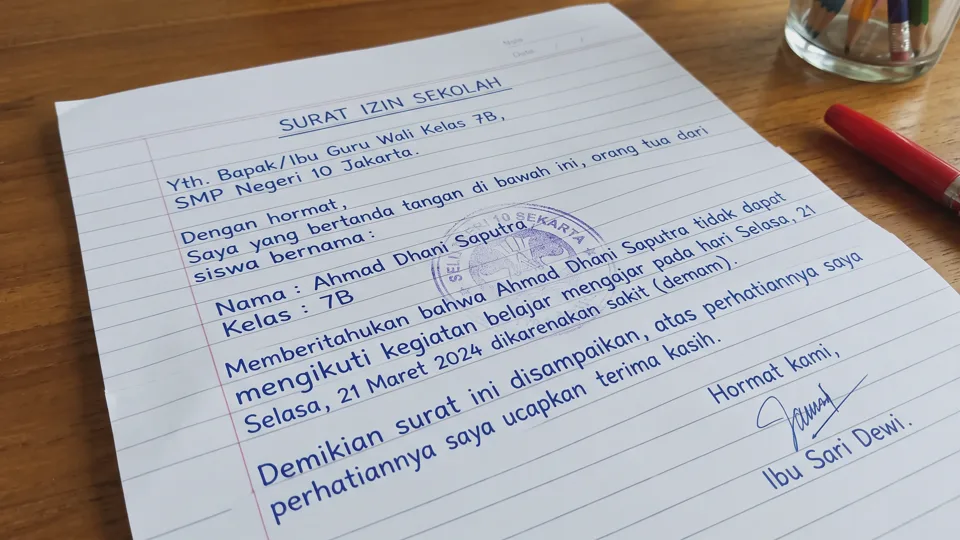 Date / /
SURAT IZIN SEKOLAH
Yth. Bapak/Ibu Guru Wali Kelas 7B,
SMP Negeri 10 Jakarta.
Dengan hormat,
Saya yang bertanda tangan di bawah ini, orang tua dari
siswa bernama:
Nama : Ahmad Dhani Saputra
Kelas : 7B
10 SEKARTA
Memberitahukan bahwa Ahmad Dhani Saputra tidak dapat
mengikuti kegiatan belajar mengajar pada hari Selasa, 21
Selasa, 21 Maret 2024 dikarenakan sakit (demam).
Demikian surat ini disampaikan, atas perhatiannya saya
perhatiannya saya ucapkan terima kasih.
Hormat kami,
Ibu Sari Dewi.